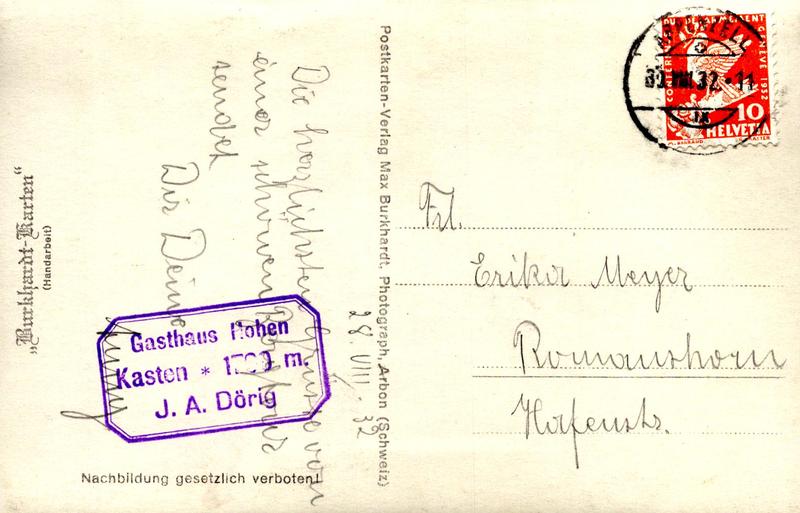 „Burkhardt-Karten“
(Handarbeit)
Die herzlichsten Grüsse von
einer schönen
sendet
Dir Deine
28. VIII. 32
Gasthaus Hohen
Kasten * m.
J. A. Dörig
Nachbildung gesetzlich verboten!
Postkarten-Verlag Max Burkhardt, Photograph, Arbon (Schweiz)
APPENZELL
VIII.32.-11
IX
DU DESARMEMENT GENEVE 1932
10
HELVETIA
Frl.
Erika Meyer
Romanshorn
Hafenstr.